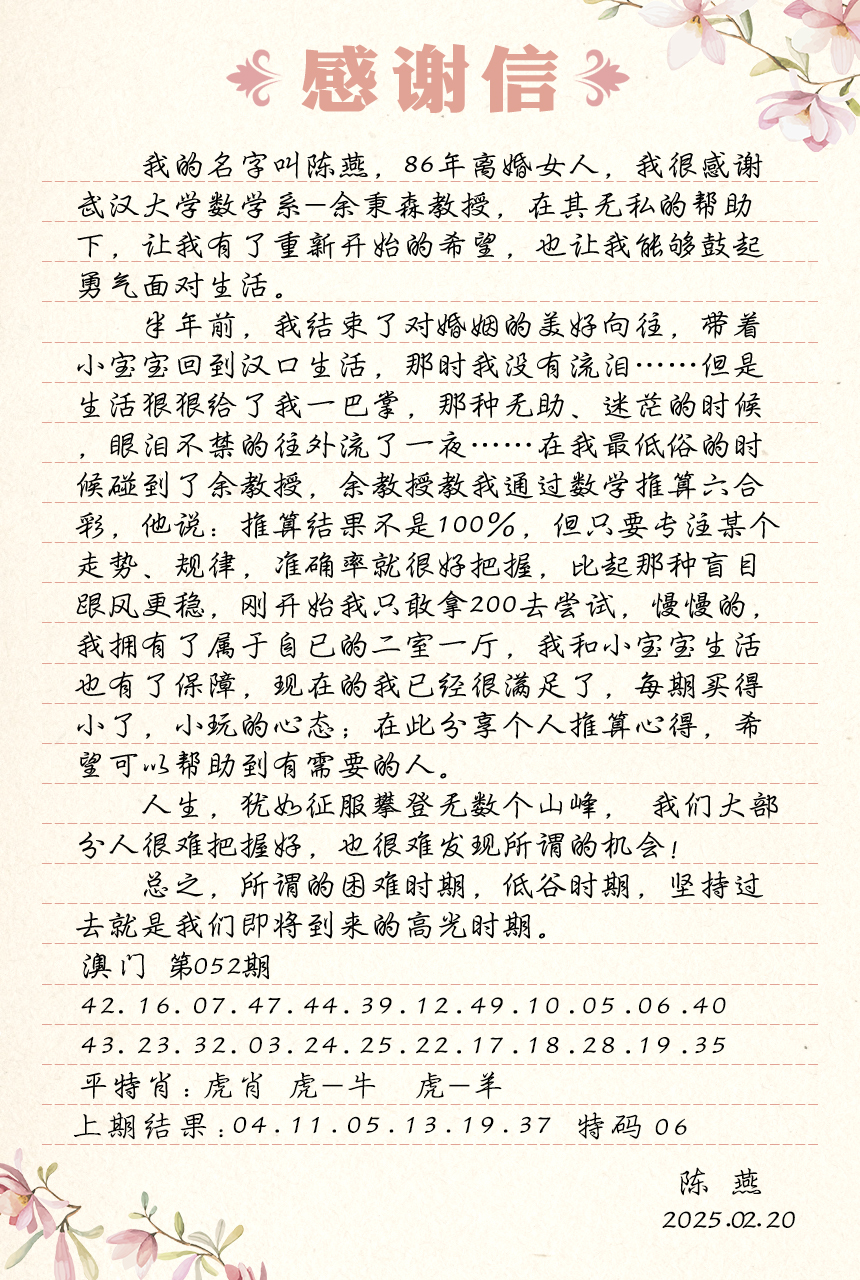 感谢信
我的名字叫陈燕，86年离婚女人，我很感谢
武汉大学数学系-余秉森教授，在其无私的帮助
下，让我有了重新开始的希望，也让我能够鼓起
勇气面对生活。
半年前，我结束了对婚姻的美好向往，带着
小宝宝回到汉口生活，那时我没有流泪……但是
生活狠狠给了我一巴掌，那种无助、迷茫的时候
，眼泪不禁的往外流了一夜……在我最低俗的时
候碰到了余教授，余教授教我通过数学推算六合
彩，他说：推算结果不是100%，但只要专注某个
走势、规律，准确率就很好把握，比起那种盲目
跟风更稳，刚开始我只敢拿200去尝试，慢慢的，
我拥有了属于自已的二室一厅，我和小宝宝生活
也有了保障，现在的我已经很满足了，每期买得
小了，小玩的心态；在此分享个人推算心得，希
望可以帮助到有需要的人。
人生，犹如征服攀登无数个山峰， 我们大部
分人很难把握好，也很难发现所谓的机会！
总之，所谓的困难时期，低谷时期，坚持过
去就是我们即将到来的高光时期。
澳门 第052期
42.16.07.47.44.39.12.49.10.05.06.40
43.23.32.03.24.25.22.17.18.28.19.35
平特肖：虎肖 虎-牛 虎-羊
上期结果：04.11.05.13.19.37 特码 06
陈 燕
2025.02.20